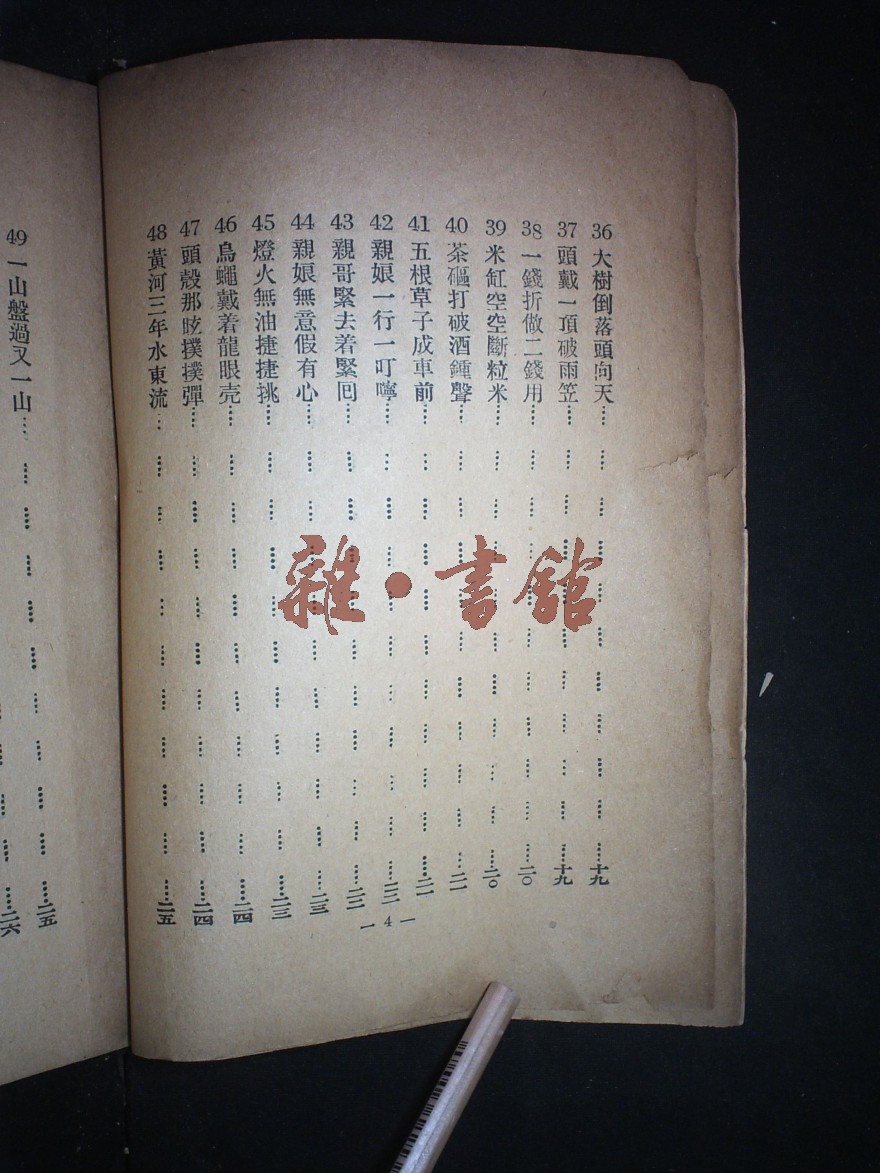 36 大樹倒落頭向天……十九
37 頭戴一頂破雨笠……十九
38 一錢折做二錢用……二〇
39 米缸空空斷粒米……二〇
40 茶磘打破酒鍾聲……二一
41 五根草子成車前……二一
42 親娘一行一叮嚀……二二
43 親哥緊去着緊囘……二二
44 親娘無意假有心……二三
45 燈火無油捷捷挑……二三
46 烏蠅戴着龍眼壳……二四
47 頭殼那眩撲撲彈……二四
48 黃河三年水東流……二五
— 4 —
49 一山盤過又一山……二五
二六
雜·書館